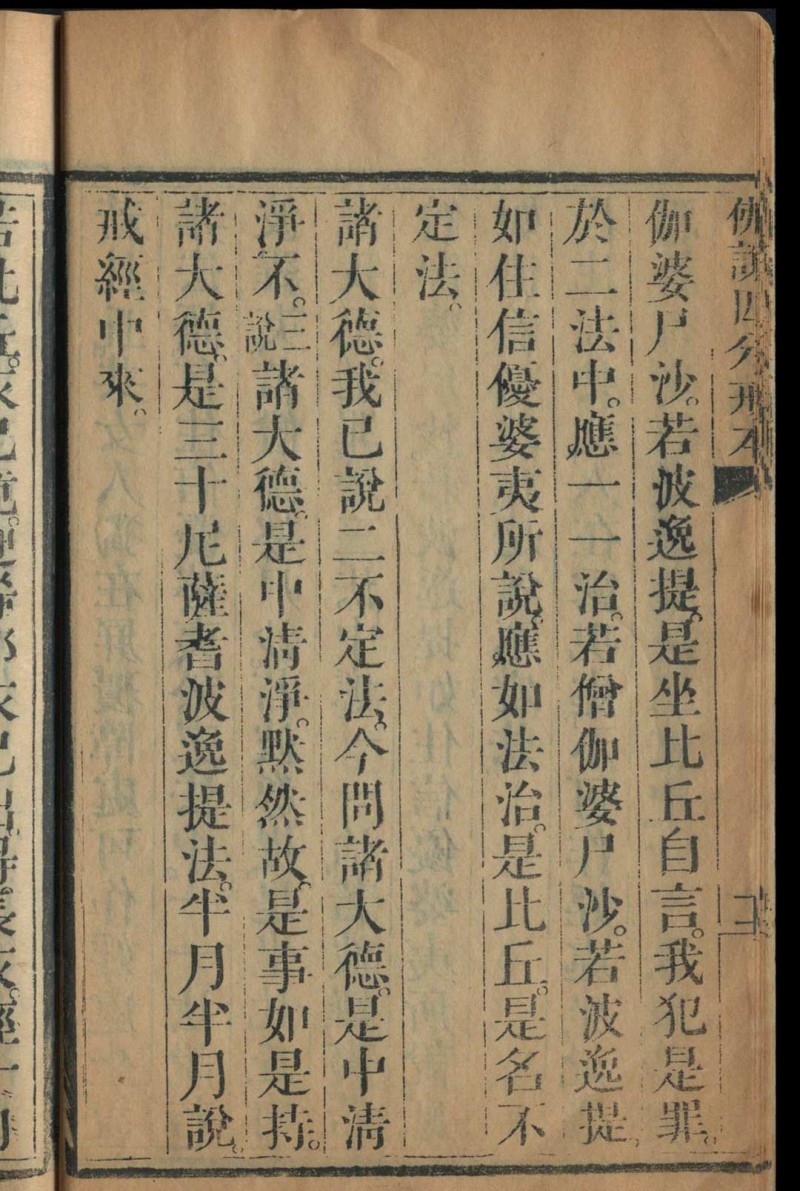 佛說四分戒本
伽婆尸沙。若波逸提。是坐比丘自言。我犯是罪。
於二法中。應一一治。若僧伽婆尸沙。若波逸提。
如住信優婆夷所說。應如法治。是比丘。是名不
定法。
諸大德。我已說二不定法。今問諸大德。是中清
淨不。三說諸大德。是中清淨。默然故。是事如是持。
諸大德。是三十尼薩耆波逸提法。半月半月說。
戒經中來。